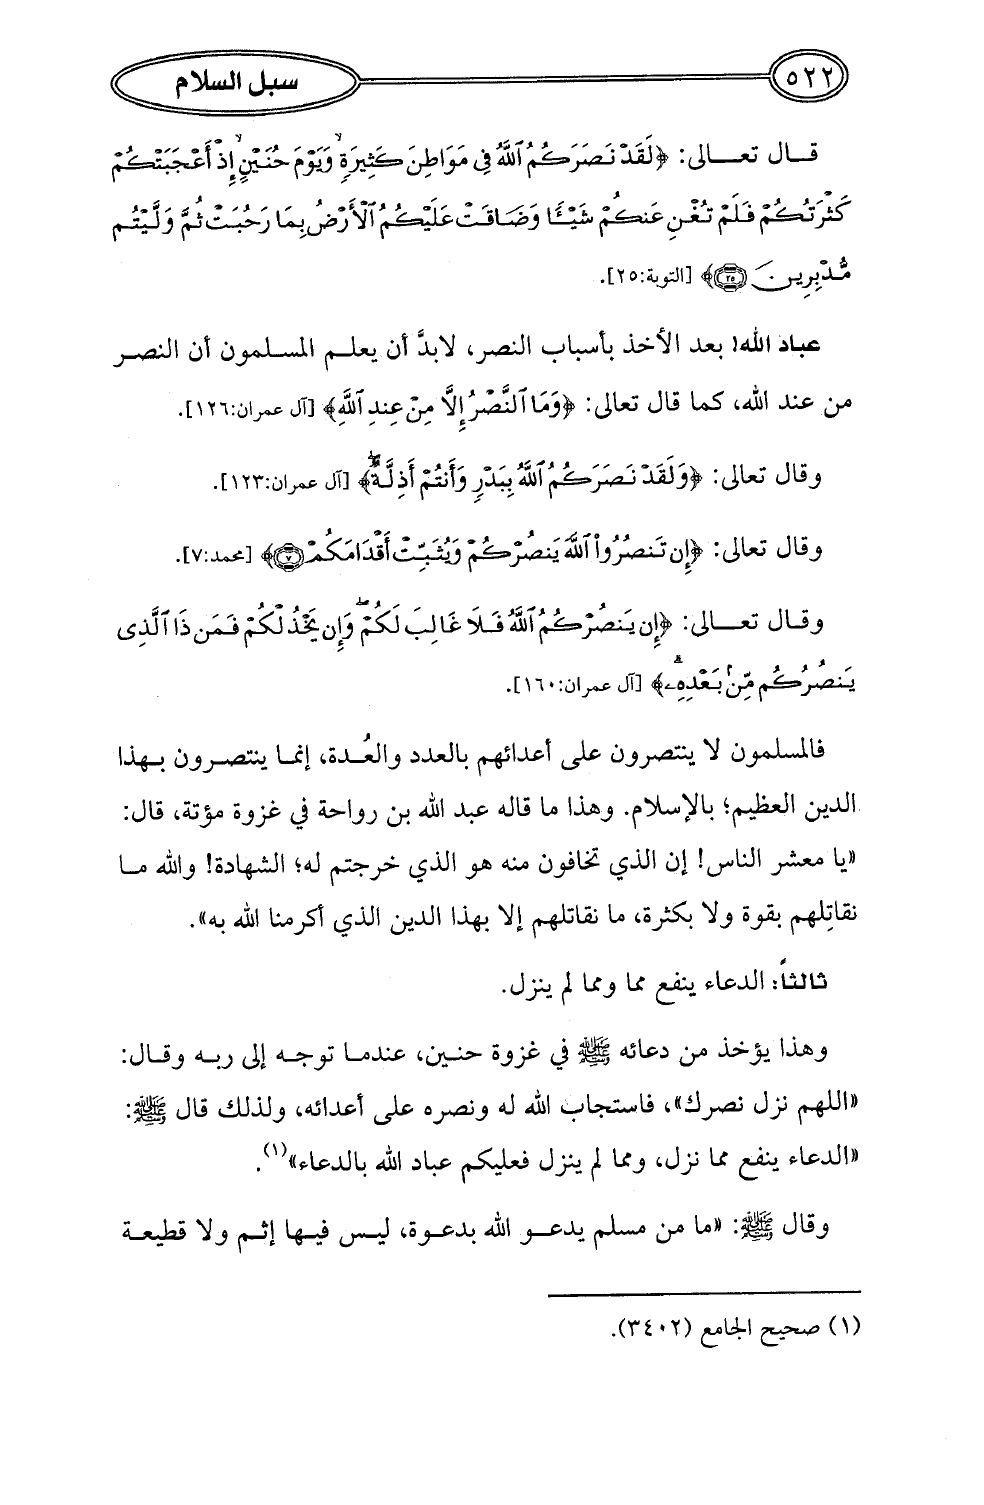 ٥٢٢
سبل السلام
قال تعالى: ﴿لَقَدْ نَصَرَكُمُ ٱللَّهُ فِى مَوَاطِنَ كَثِيرَةٍ ۙ وَيَوْمَ حُنَيْنٍ ۙ إِذْ أَعْجَبَتْكُمْ
كَثْرَتُكُمْ فَلَمْ تُغْنِ عَنكُمْ شَيْـًٔا وَضَاقَتْ عَلَيْكُمُ ٱلْأَرْضُ بِمَا رَحُبَتْ ثُمَّ وَلَّيْتُم
مُّدْبِرِينَ ٢٥﴾ [التوبة:٢٥].
عباد الله! بعد الأخذ بأسباب النصر، لابدَّ أن يعلم المسلمون أن النصر
من عند الله، كما قال تعالى: ﴿وَمَا ٱلنَّصْرُ إِلَّا مِنْ عِندِ ٱللَّهِ﴾ [آل عمران:١٢٦].
وقال تعالى: ﴿وَلَقَدْ نَصَرَكُمُ ٱللَّهُ بِبَدْرٍ وَأَنتُمْ أَذِلَّةٌ ۖ﴾ [آل عمران:١٢٣].
وقال تعالى: ﴿إِن تَنصُرُوا۟ ٱللَّهَ يَنصُرْكُمْ وَيُثَبِّتْ أَقْدَامَكُمْ ٧﴾ [محمد:٧].
وقال تعالى: ﴿إِن يَنصُرْكُمُ ٱللَّهُ فَلَا غَالِبَ لَكُمْ ۖ وَإِن يَخْذُلْكُمْ فَمَن ذَا ٱلَّذِى
يَنصُرُكُم مِّنۢ بَعْدِهِۦ ۗ﴾ [آل عمران:١٦٠].
فالمسلمون لا ينتصرون على أعدائهم بالعدد والعُدة، إنما ينتصرون بهذا
الدين العظيم؛ بالإسلام. وهذا ما قاله عبد الله بن رواحة في غزوة مؤتة، قال:
«يا معشر الناس! إن الذي تخافون منه هو الذي خرجتم له؛ الشهادة! والله ما
نقاتِلهم بقوة ولا بكثرة، ما نقاتلهم إلا بهذا الدين الذي أكرمنا الله به».
ثالثاً: الدعاء ينفع مما ومما لم ينزل.
وهذا يؤخذ من دعائه ﷺ في غزوة حنين، عندما توجه إلى ربه وقال:
«اللهم نزل نصرك»، فاستجاب الله له ونصره على أعدائه، ولذلك قال ﷺ:
«الدعاء ينفع مما نزل، ومما لم ينزل فعليكم عباد الله بالدعاء»(١).
وقال ﷺ: «ما من مسلم يدعو الله بدعوة، ليس فيها إثم ولا قطيعة
(١) صحيح الجامع (٣٤٠٢).